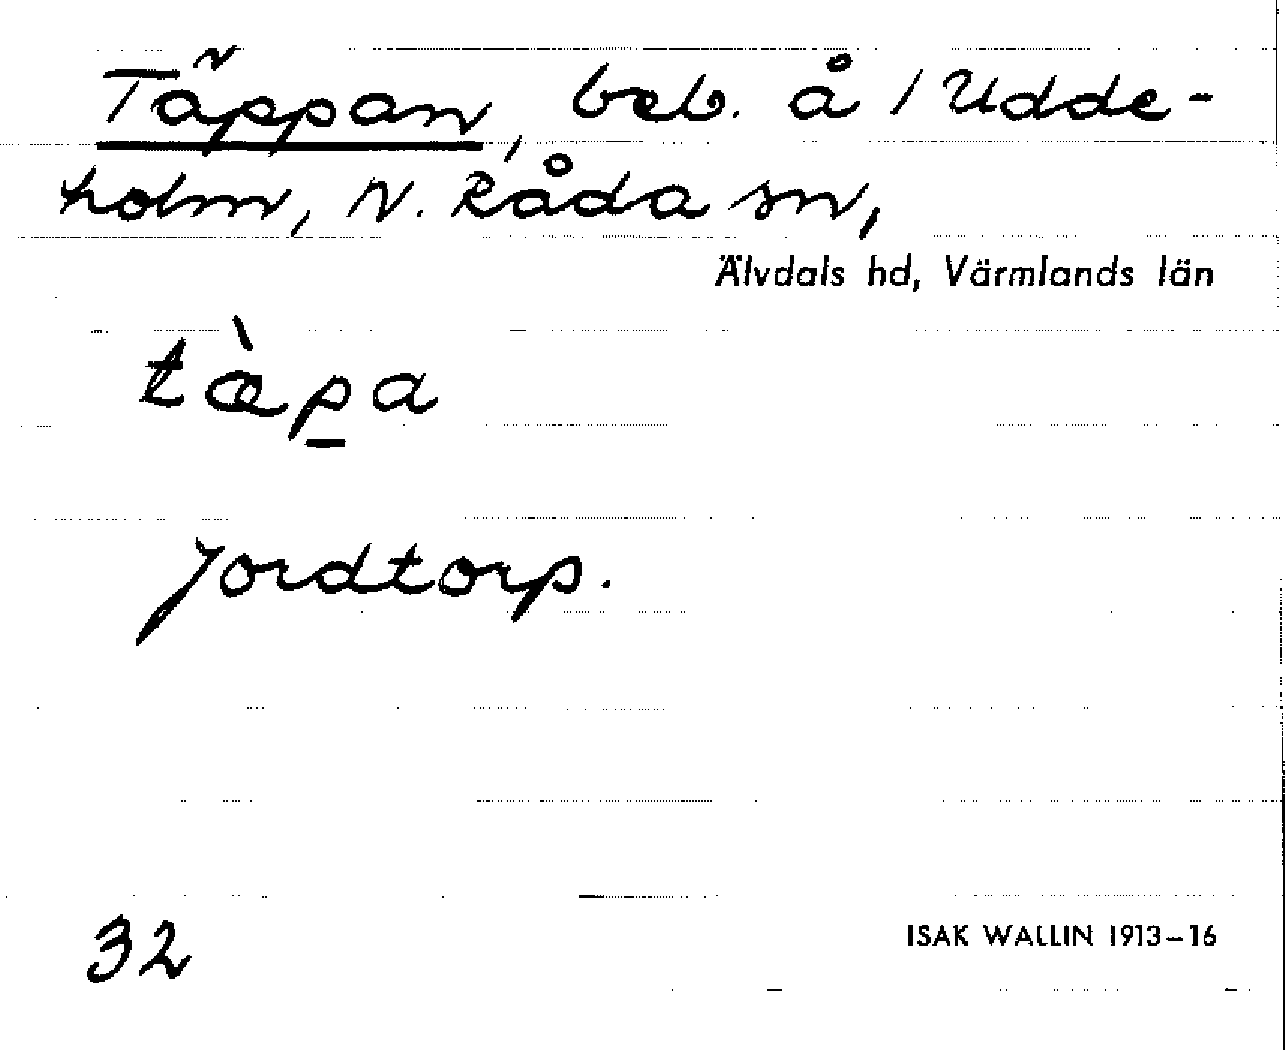 Täppan, beb. å 1 Udde-
holm, N. Råda sn,
Älvdals hd, Värmlands län
tæ̀p̲a
Jordtorp.
32
ISAK WALLIN 1913–16